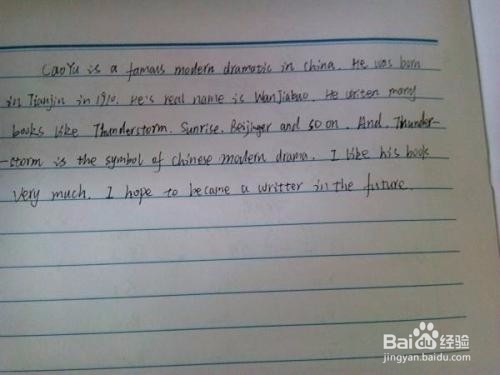 CaoYu is a famous modern dramatic in China. He was born
in Tianjin in 1910. He's real name is WanJiabao. He writen many
books like Thunderstorm, Sunrise, Beijinger and so on. And Thunder-
-storm is the symbol of chinese modern drama. I like his book
very much. I hope to became a writter in the future.
Baidu经验
jingyan.baidu.com